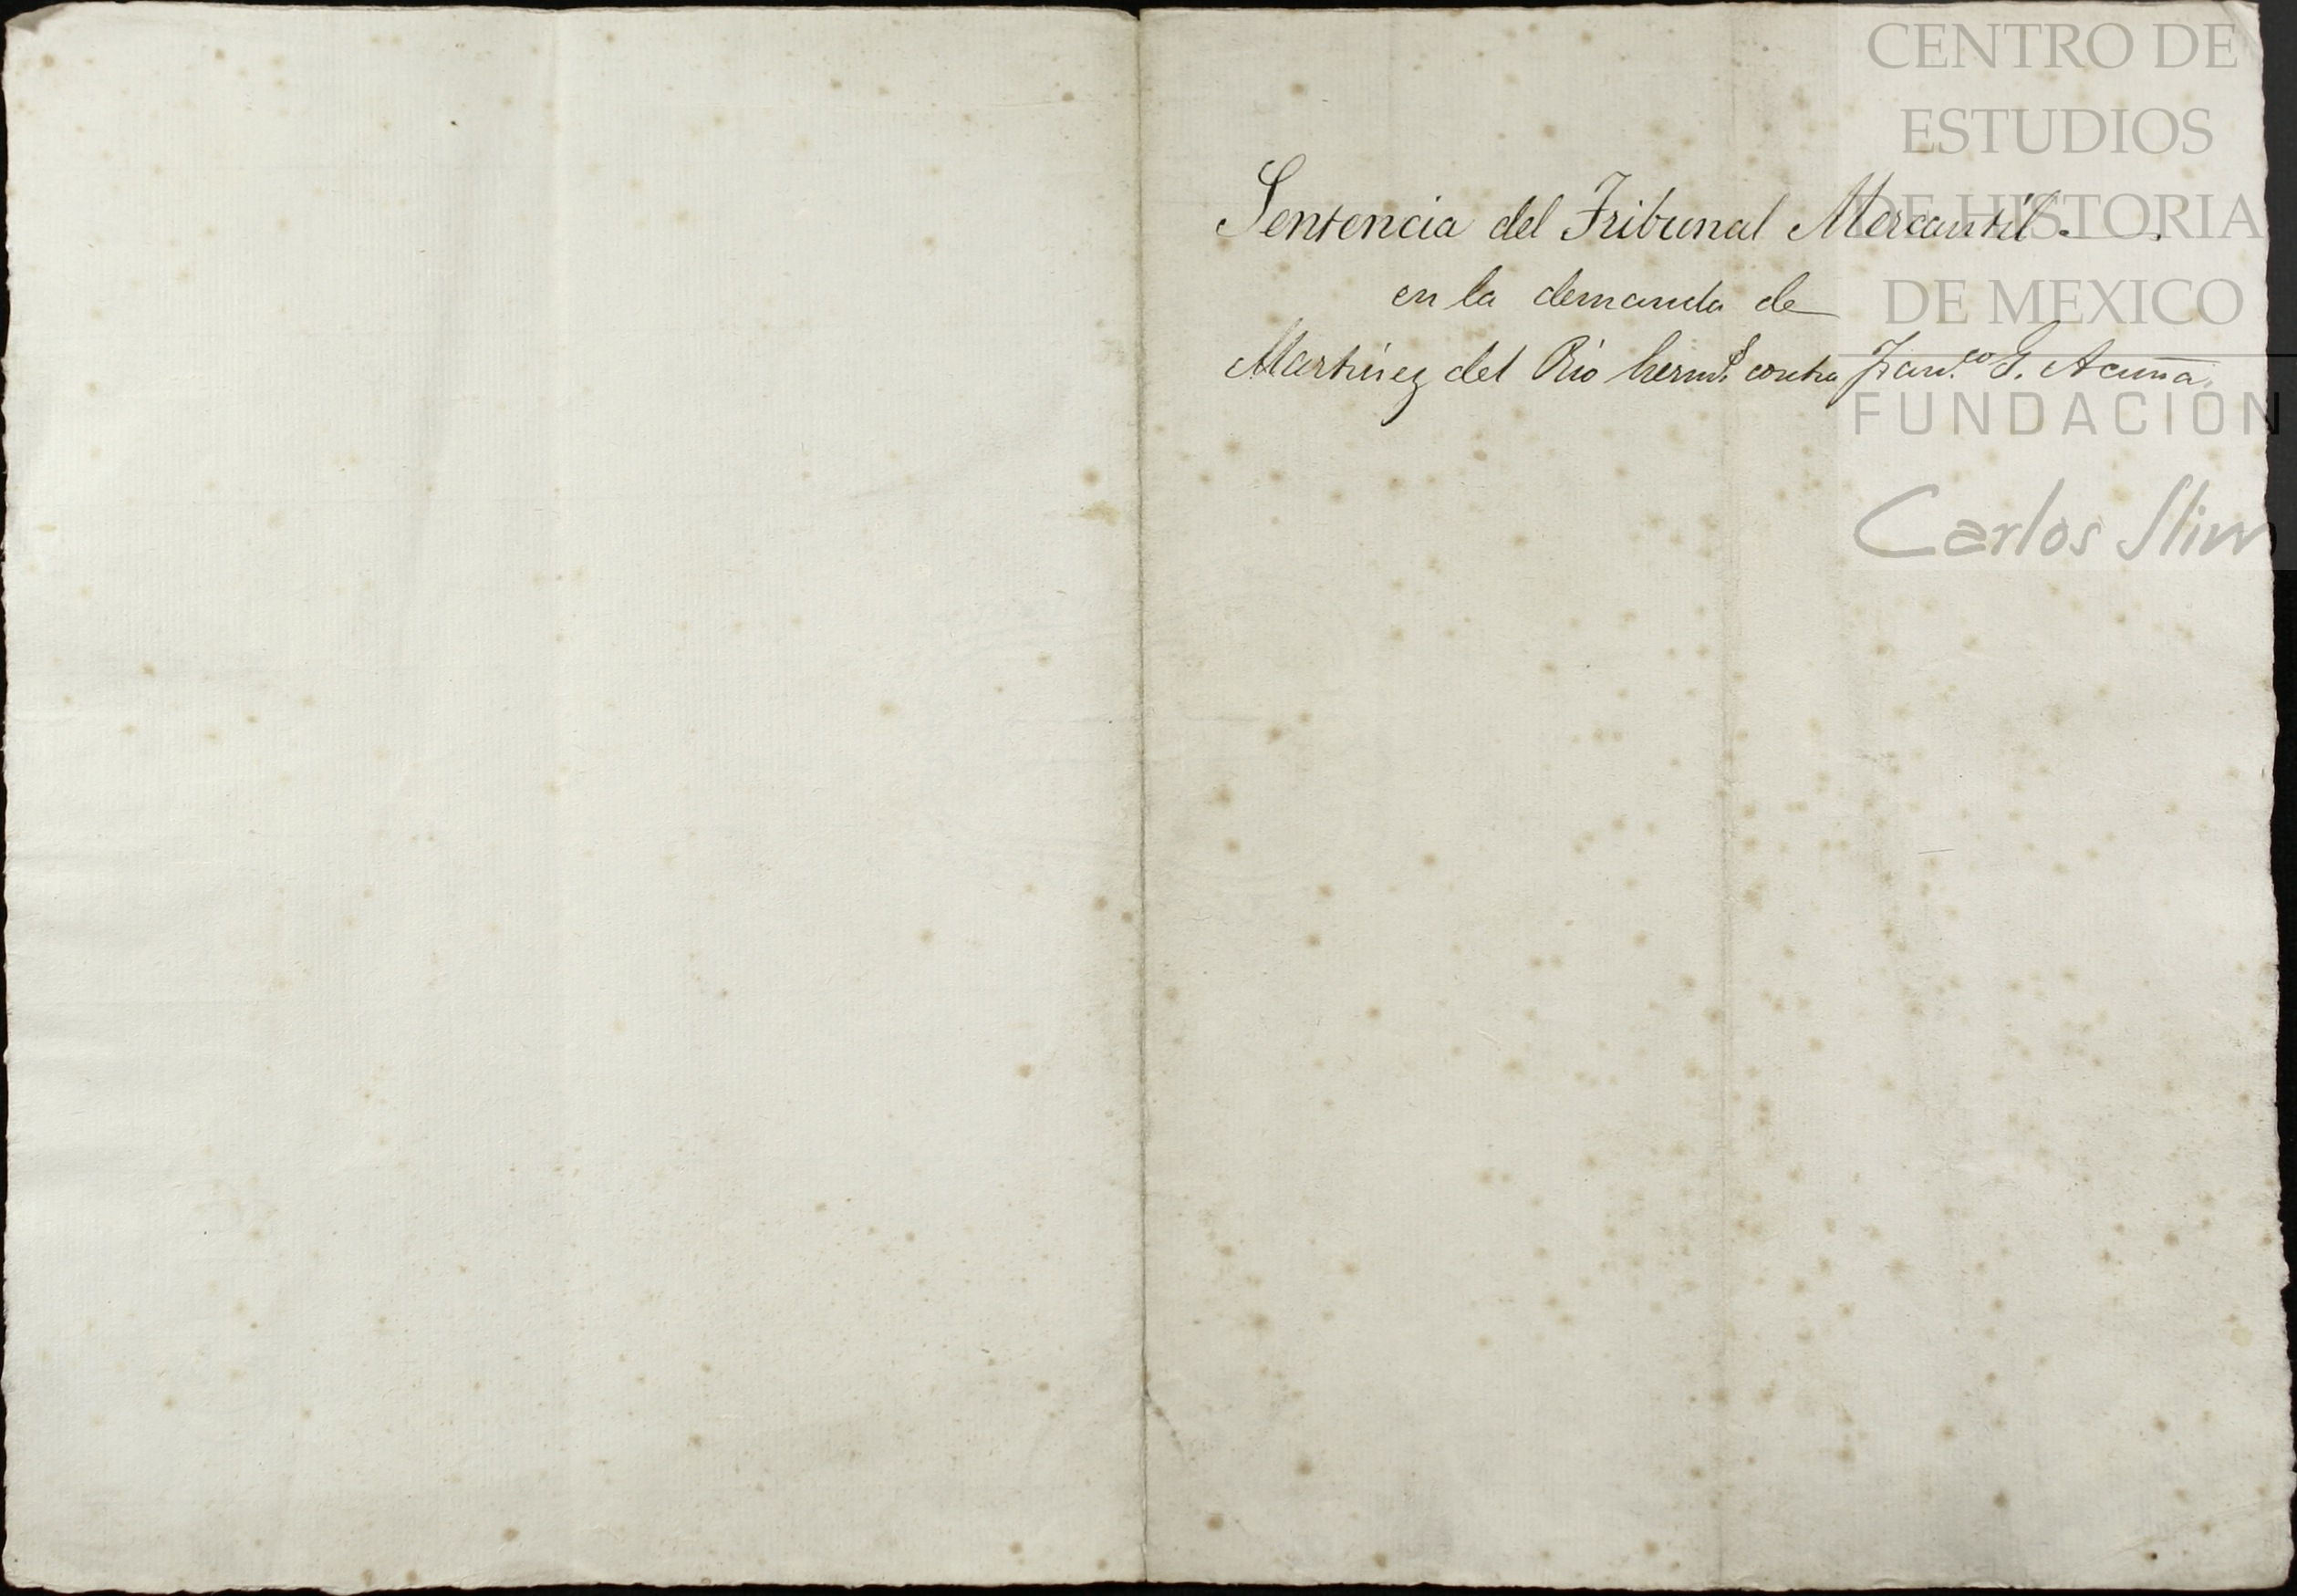 Sentencia del Tribunal Mercantil.
en la demanda de
Martinez del Rio herm.s contra Fran.co G. Acuña.
CENTRO DE
ESTUDIOS
DE HISTORIA
DE MEXICO
FUNDACION
Carlos Slim